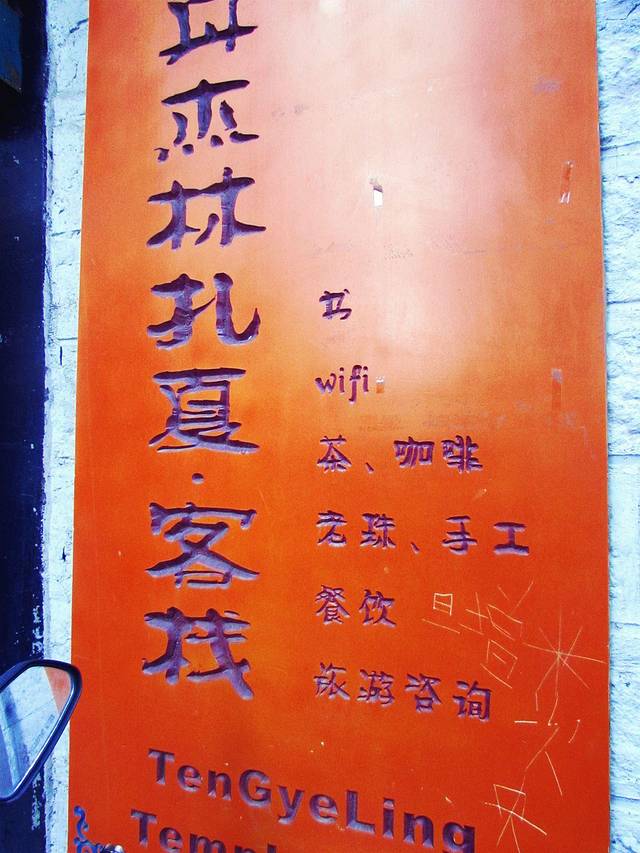 丹杰林扎夏·客栈
书
wifi
茶、咖啡
老珠、手工
餐饮
旅游咨询
TenGyeLing